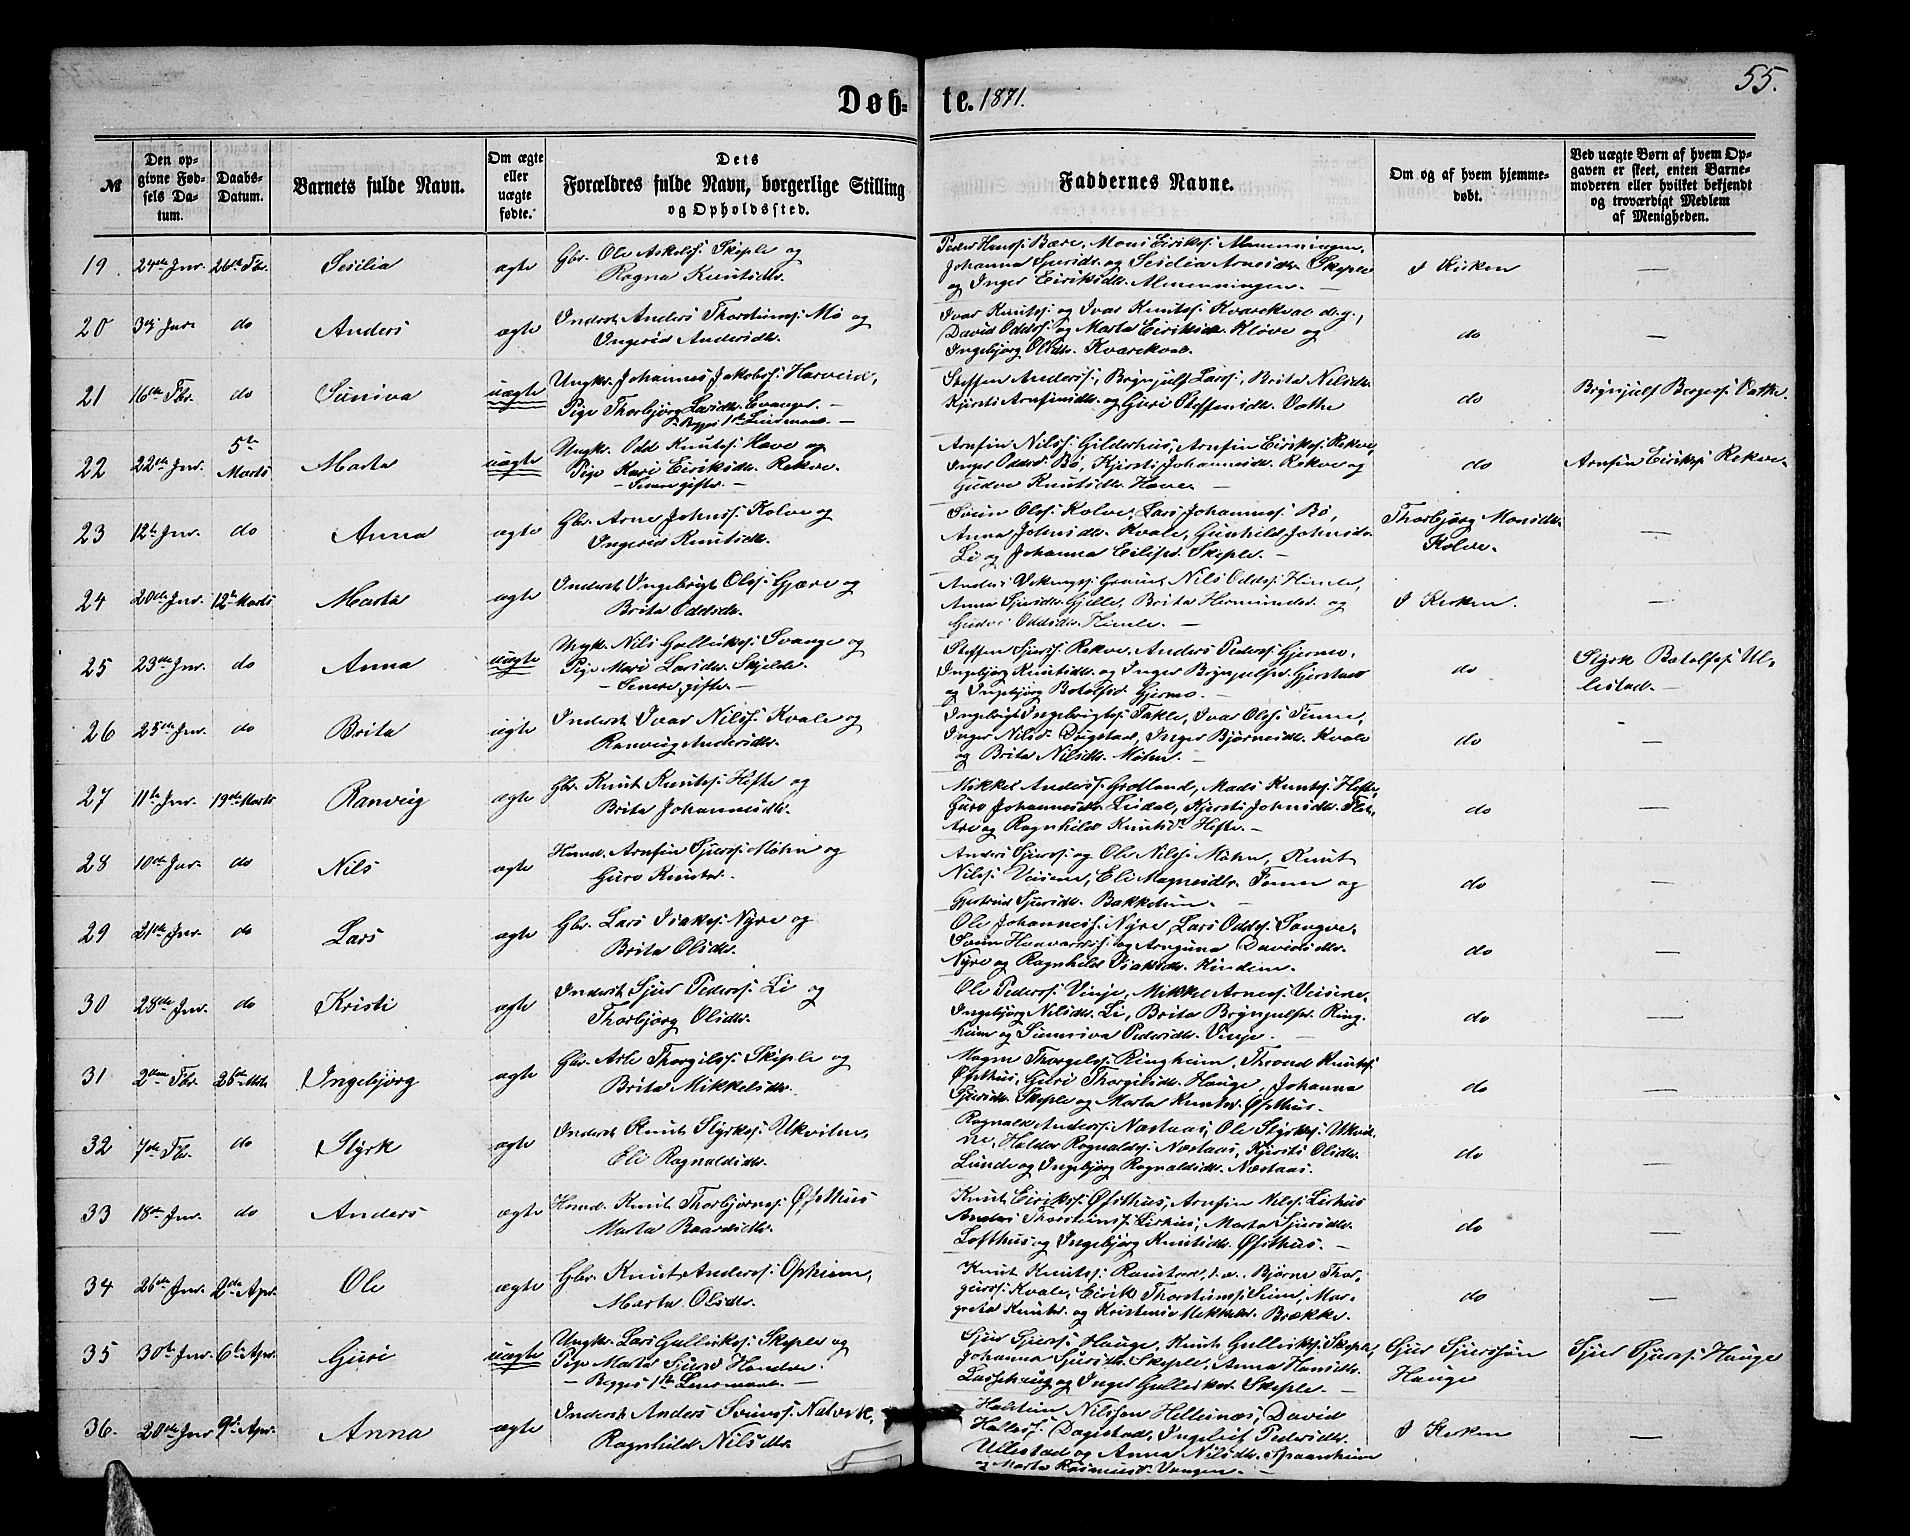 55.
Døb- te. 1871.
№
Den op-
givne Fød-
sels Da-
tum.
Daabs-
Datum.
Barnets fulde Navn.
Om ægte
eller
uægte
fødte.
Dets
Forældres fulde Navn, borgerlige Stilling
og Opholdssted.
Faddernes Navne.
Om og af hvem hjemme-
døbt.
Ved uægte Børn af hvem Op-
gaven er skeet, enten Barne-
moderen eller hvilket bekjendt
og troværdigt Medlem
af Menigheden.
19. 24de Jnr. 26de Fbr. Sesilia ægte
Gbr. Ole Askelss. Skiple og
Ragna Knutsdtr.
Peder Hanss. Bære, Mons Eirikss. Almenningen,
Johanna Sjursdtr. og Sesilia Arnesdtr. Skiple
og Inger Eiriksdtr. Almenningen. —
I Kirken —
20 3die Jnr. do Anders ægte
Inderst. Anders Thorsteinss. Mø og
Ingerid Andersdtr.
Ivar Knutss. og Ivar Knutss. Kvarekval d.y.,
David Oddss. og Marta Eiriksdtr. Kløve og
Ingebjørg Olsdtr. Kvarekval.
do —
21 16de Fbr. do Suniva uægte
Ungkr. Johannes Jakobss. Horveid,
Pige Thorbjørg Larsdtr. Evanger. —
Begges 1ste Leiermaal. —
Steffen Anderss., Brynjulf Larss., Brita Nilsdtr.
Kjersti Arnfinsdtr. og Guri Steffensdtr. Vathe
do Brynjulf Børgess. Vathe.
22 22de Jnr. 5te Marts Marta uægte
Ungkr. Odd Knutss. Hæve og
Pige Kari Eiriksdtr. Rekve.
— Senere gifte. —
Arnfin Nilss. Gilderhus, Arnfin Eirikss. Rekve,
Inger Oddsd. Bø, Kjersti Johannesdtr. Rekve og
Gudve Knutsdtr. Hæve. —
do Arnfin Eirikss. Rekve.
23 12te Jnr. do Anna ægte
Gbr. Arne Johnss. Kolve og
Ingerid Knutsdtr.
Svein Olss. Kolve, Lars Johanness. Bø,
Anna Johnsdtr. Kvale, Gunhild Johnsdtr.
Li og Johanna Eilifsd. Skiple. —
Thorbjørg Monsdtr.
Kolve. —
24 20de Jnr. 12te Marts Marta ægte
Inderst. Ingebrigt Olss. Gjære og
Brita Oddsdtr.
Anders Vikingss. Nils Oddss. Himle,
Anna Sjursdtr. Gjelle, Brita Hermundsd. og
Gudve Oddsdtr. Himle. —
I Kirken. —
25 23de Jnr. do Anna uægte
Ungk. Nils Gullikss. Svange og
Pige Mari Larsdtr. Skjelde.
— Senere gifte. —
Steffen Sjurss. Rekve, Anders Pederss. Gjermo,
Ingebjørg Knutsdtr. og Inger Brynjulfsd. Gjerstad
og Ingebjørg Botolfsd. Gjermo. —
do Styrk Botolfss. Ul-
lestad. —
26 25de Jnr. do Brita ægte
Inderst. Ivar Nilss. Kvale og
Ranveig Andersdtr.
Ingebrigt Ingebrigtss. Takle, Ivar Olss. Finne,
Inger Nilsd. Dugstad, Inger Bjørnesdtr. Kvale
og Brita Nilsdtr. Møhn. —
do —
27 11te Jnr. 19de Marts Ranveig ægte
Gbr. Knut Knutss. Hefte og
Brita Johannesdtr.
Mikkel Anderss. Grotland, Mads Knutss. Hefte,
Guro Johannesdtr. Leidal, Kjersti Johnsdtr. Flat-
are og Ragnhild Knutsd. Hefte. —
do —
28 10de Jnr. do Nils ægte
Husmd. Arnfin Sjurss. Møhn og
Guro Knutsd. —
Anders Sjurss. og Ole Nilss. Møhn, Knut
Nilss. Veisene, Eli Magnesdtr. Finne og
Gjertrud Sjursdtr. Bakketun. —
do —
29 21de Jnr. do Lars ægte
Gbr. Lars Isakss. Nyre og
Brita Olsdtr.
Ole Johanness. Nyre, Lars Oddss. Songve,
Svein Haavardss. og Arnguna Davidsdtr.
Nyre og Ragnhild Isaksdtr. Kindem.
do —
30 28de Jnr. do Kristi ægte
Inderst. Sjur Pederss. Li og
Thorbjørg Olsdtr.
Ole Pederss. Vinje, Mikkel Arness. Veisene,
Ingebjørg Nilsdtr. Li, Brita Brynjulfsd. Ring-
heim og Sunniva Pedersdtr. Vinje. —
do —
31 2den Fbr. 26de Mts. Ingebjørg ægte
Gbr. Arle Thorgilss. Skiple og
Brita Mikkelsdtr.
Magne Thorgelss. Ringheim, Thrond Knutss.
Øfsthus, Guri Thorgilsdtr. Hauge, Johanna
Sjursdtr. Skiple og Marta Knutsd. Øfsthus. —
do —
32 7de Fbr. do Styrk ægte
Inderst. Knut Styrkss. Ukvitne,
Eli Ragnaldsdtr.
Ragnald Anderss. Næstaas, Ole Styrkss. Ukvit-
ne, Haldor Ragnaldss. Næstaas, Kjersti Olsdtr.
Lunde og Ingebjørg Ragnaldsdtr. Næstaas.
do —
33 18de Jnr. do Anders ægte
Husmd. Knut Thorbjørnss. Øfsthus
Marta Baardsdtr.
Knut Eirikss. Øfsthus, Arnfin Nilss. Lirhus
Anders Thorsteinss. Lirhus, Marta Sjursdtr.
Lofthus og Ingebjørg Knutsdtr. Øfsthus. —
do —
34 26de Jnr. 2den Apr. Ole ægte
Gbr. Knut Anderss. Opheim,
Marta Olsdtr.
Knut Knutss. Bjørne Thor-
geirss. Kvale, Eirik Thorsteinss. Mar-
greta Knutsd. og Kristense Mikkelsd. Brække.
do —
35 30te Jnr. 6te Apr. Guri uægte
Ungkr. Lars Gullikss. Skiple og
Pige Marta Sjursd. Hondve.
— Begges 1ste Leiermaal. —
Sjur Sjurss. Hauge, Knut Gullikss. Skiple,
Johanna Sjursdtr. Skiple, Anna Hansdtr.
og Inger Gulliksd. Skiple. —
Sjur Sjurssøn
Hauge
Sjur Sjurss. Hauge
36. 20de Jnr. 9de Apr. Anna ægte
Inderst. Anders Sveinss. Nætvek,
Ragnhild Nilsdtr.
Halstein Nilssen Hellesnæs, David
Hallss. Dagestad, Ingeleif Pedersdtr.
Ullestad og Anna Nilsdtr. Spaanheim
og Marta Rasmusd. Vangen. —
I Kirken —